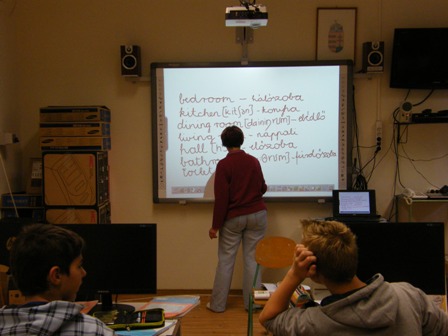 bedroom – hálószoba
kitchen [kitʃən] – konyha
dining room [dainiŋrum] – ebédlő
living – nappali
hall [h – előszoba
bathro rum] – fürdőszoba
toilet